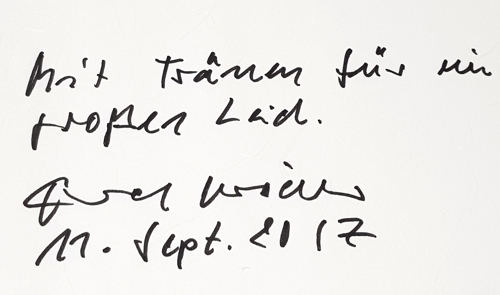 Mit Tränen für ein
großen Leid.
11. Sept. 2017